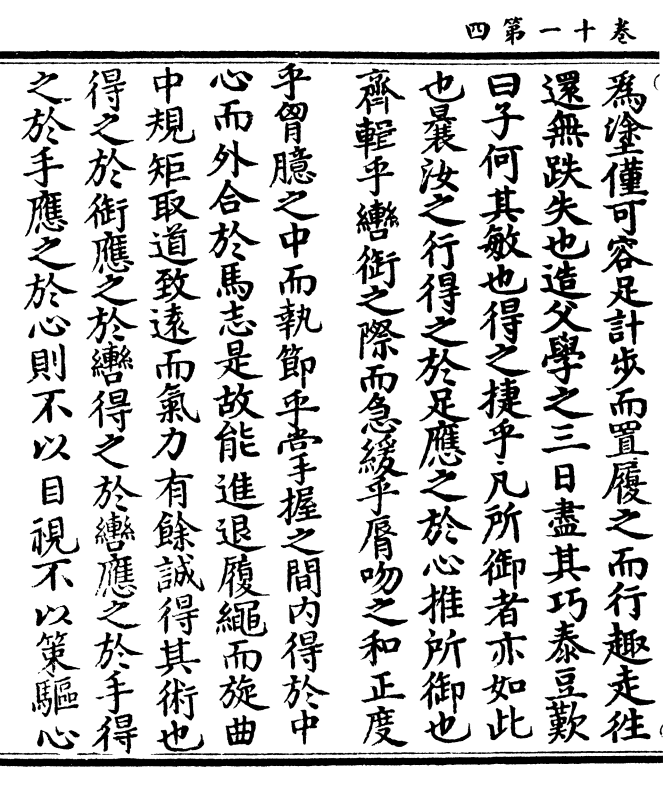 卷十一第四
爲塗僅可容足計步而置履之而行趣走往
還無跌失也造父學之三日盡其巧泰豆歎
曰子何其敏也得之捷乎凡所御者亦如此
也曩汝之行得之於足應之於心推所御也
齊輯乎轡銜之際而急緩乎脣吻之和正度
乎胷臆之中而執節乎掌手握之間内得於中
心而外合於馬志是故能進退履繩而旋曲
中規矩取道致遠而氣力有餘誠得其術也
得之於銜應之於轡得之於轡應之於手得
之於手應之於心則不以目視不以策驅心